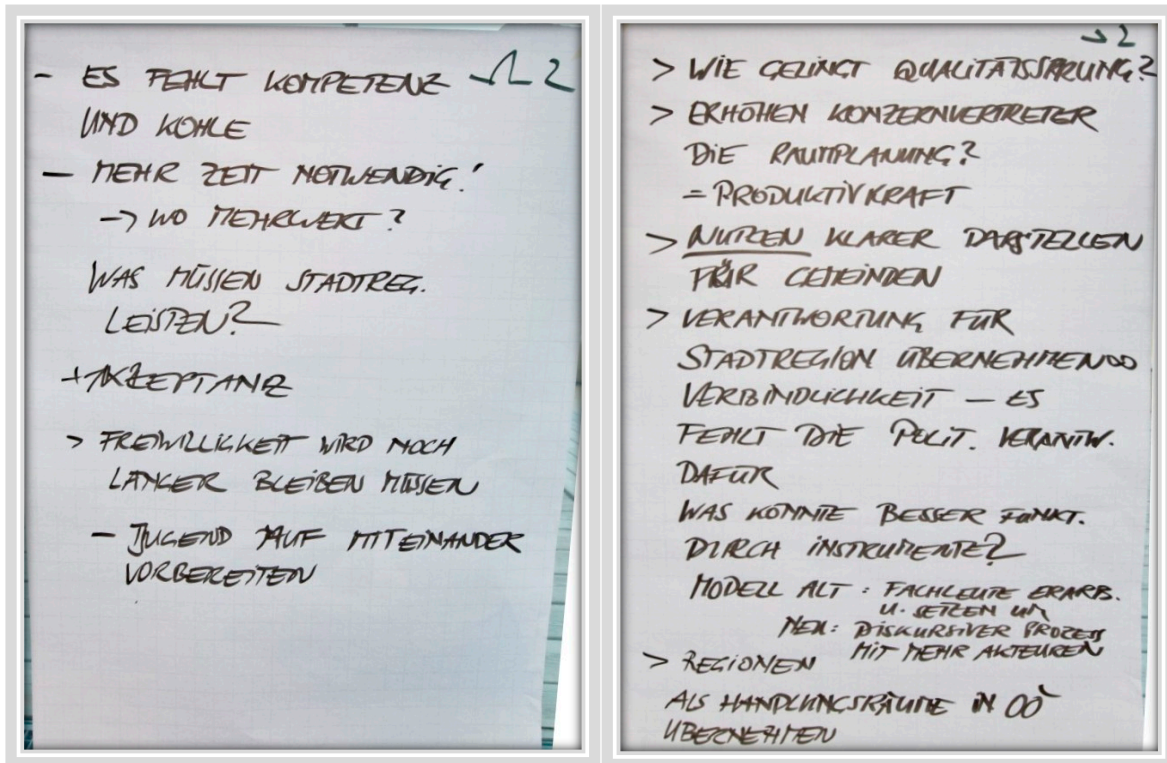 - ES FEHLT KOMPETENZ
UND KOHLE
- MEHR ZEIT NOTWENDIG!
-> WO MEHRWERT?
WAS MÜSSEN STADTREG.
LEISTEN?
+ AKZEPTANZ
> FREIWILLIGKEIT WIRD NOCH
LÄNGER BLEIBEN MÜSSEN
- JUGEND AUF MITEINANDER
VORBEREITEN
2
> WIE GELINGT QUALITÄTSSPRUNG?
> ERHÖHEN KONZERNVERTRETER
DIE RAUMPLANUNG?
= PRODUKTIVKRAFT
> NUTZEN KLARER DARSTELLEN
FÜR GEMEINDEN
> VERANTWORTUNG FÜR
STADTREGION ÜBERNEHMEN
VERBINDLICHKEIT - ES
FEHLT DIE POLIT. VERANTW.
DAFÜR
WAS KÖNNTE BESSER FUNKT.
DURCH INSTRUMENTE?
MODELL ALT: FACHLEUTE ERARB.
U. SETZEN UM
NEU: DISKURSIVER PROZESS
MIT MEHR AKTEUREN
> REGIONEN
ALS HANDLUNGSRÄUME IN OÖ
ÜBERNEHMEN